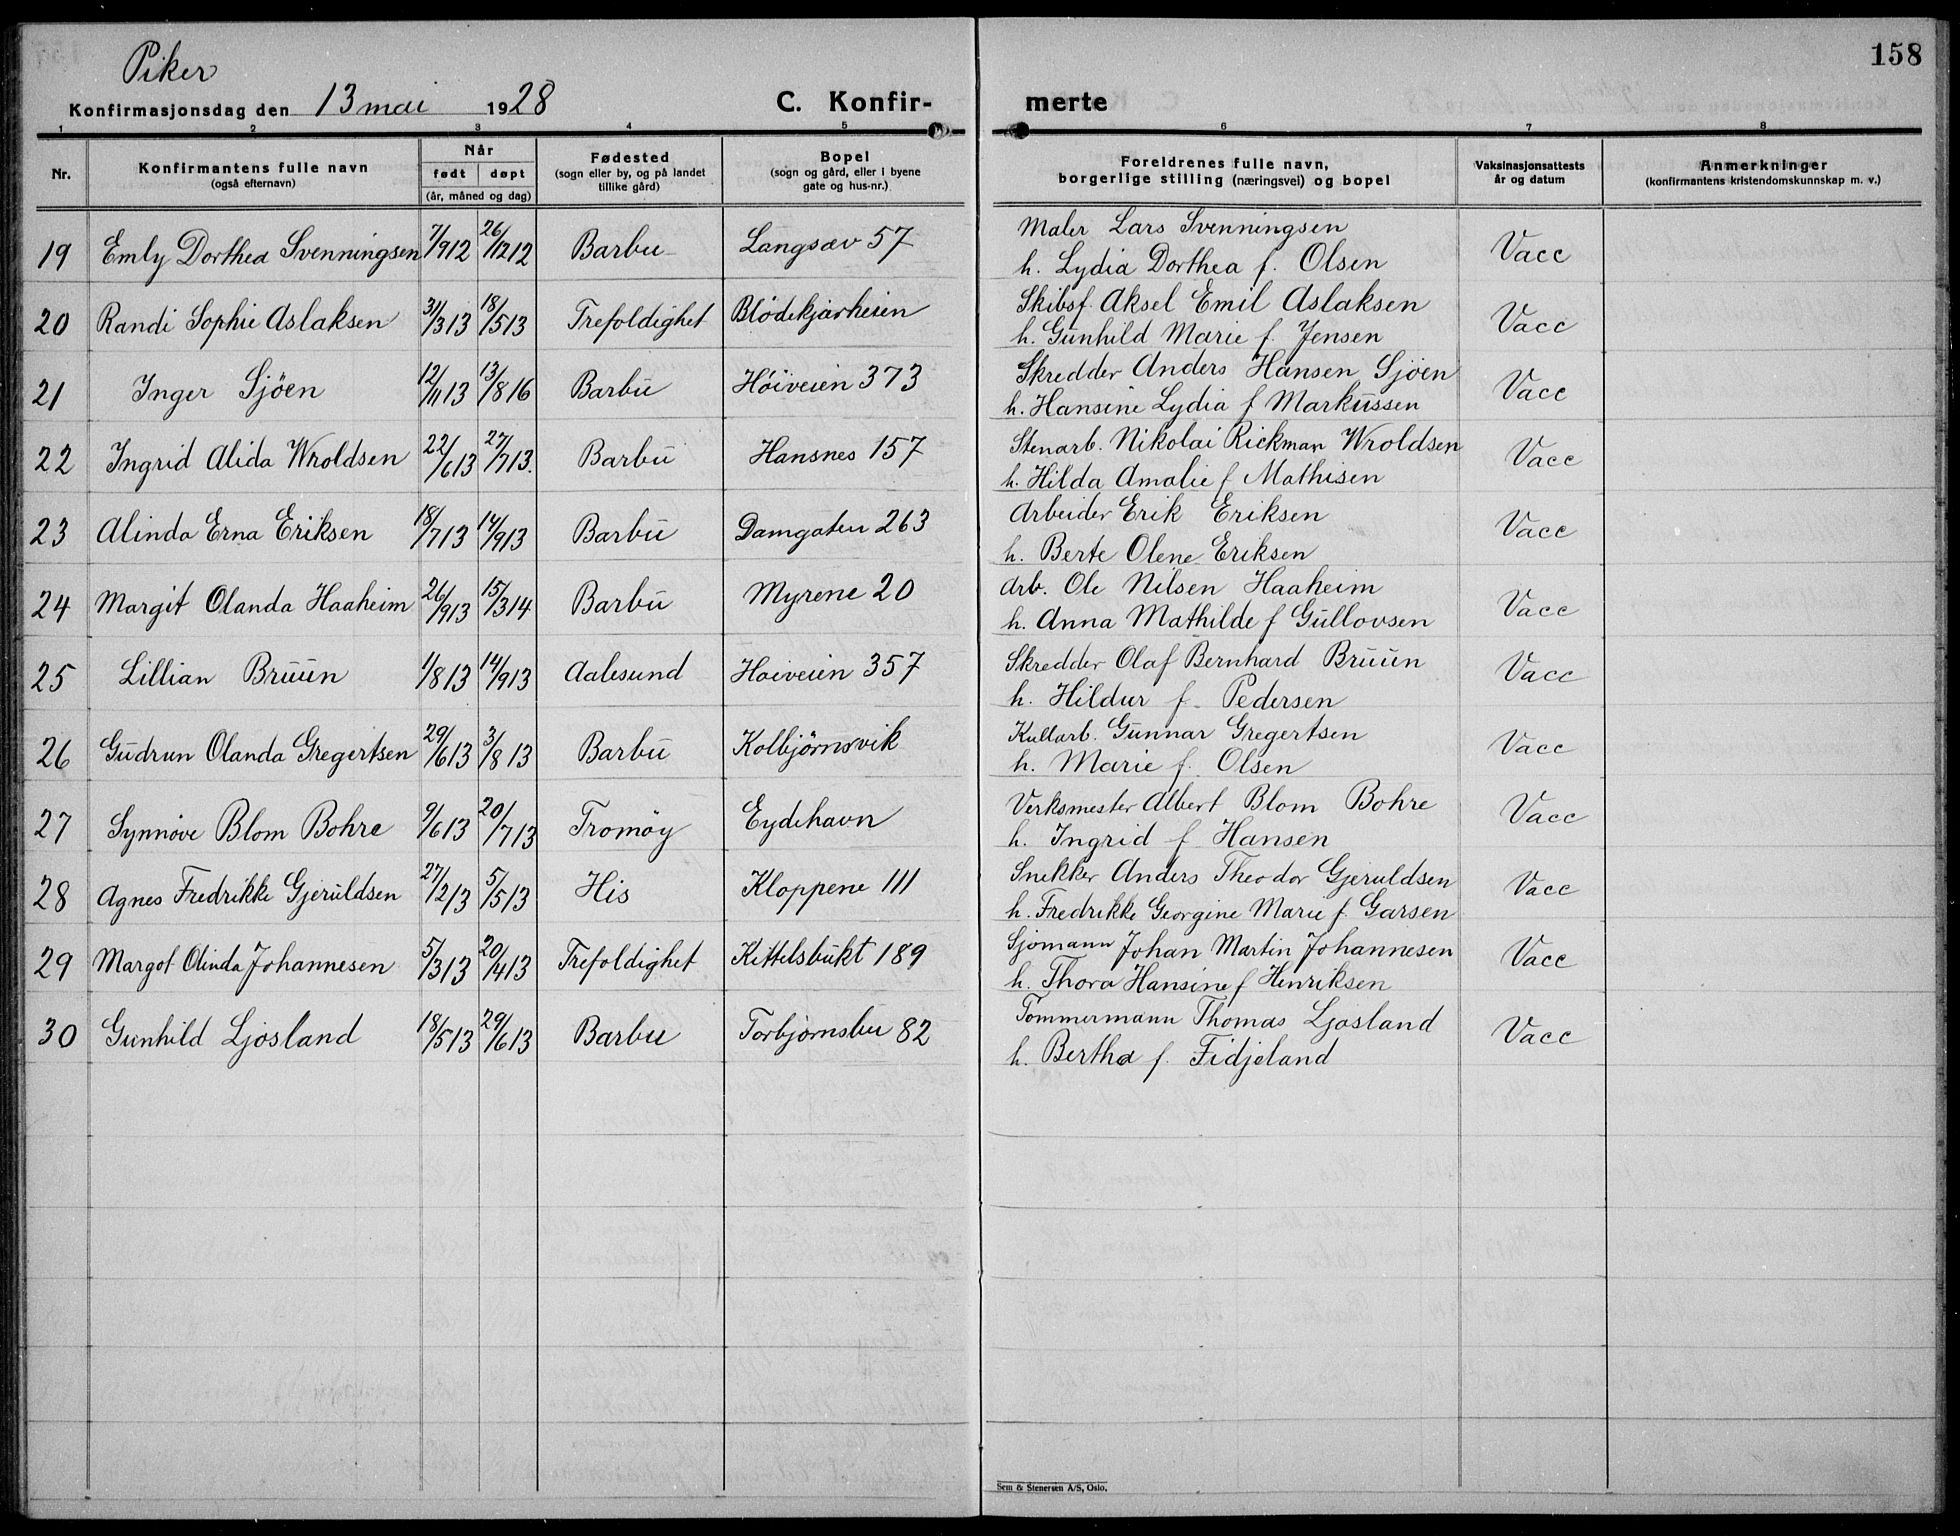 158
Piker
Konfirmasjonsdag den 13 mai 1928 C. Konfir- merte
1 2 3 4 5 6 7 8
Nr. Konfirmantens fulle navn (også efternavn) Når født døpt (år, måned og dag) Fødested (sogn eller by, og på landet tillike gård) Bopel (sogn og gård, eller i byene gate og hus-nr.) Foreldrenes fulle navn, borgerlige stilling (næringsvei) og bopel Vaksinasjonsattests år og datum Anmerkninger (konfirmantens kristendomskunnskap m. v.)
19 Emly Dorthea Svenningsen 7/912 26/1212 Barbu Langsæv 57 Maler Lars Svenningsen Vacc
h. Lydia Dorthea f. Olsen
20 Randi Sophie Aslaksen 31/313 18/513 Trefoldighet Blödekjærheien Skibsf Aksel Emil Aslaksen Vacc
h. Gunhild Marie f. Jensen
21 Inger Sjöen 12/1113 13/816 Barbu Höiveien 373 Skredder Anders Hansen Sjöen Vacc
h. Hansine Lydia f Markussen
22 Ingrid Alida Wroldsen 22/613 27/713. Barbu Hansnes 157 Stenarb. Nikolai Rickman Wroldsen Vacc
h. Hilda Amalie f Mathisen
23 Alinda Erna Eriksen 18/713 14/913 Barbu Damgaten 263 Arbeider Erik Eriksen Vacc
h. Berte Olene Eriksen
24 Margit Olanda Haaheim 26/913 15/314 Barbu Myrene 20 Arb. Ole Nilsen Haaheim Vacc
h. Anna Mathilde f Gullovsen
25 Lillian Bruun 1/813 14/913 Aalesund Höiveien 357 Skredder Olaf Bernhard Bruun Vacc
h. Hildur f. Pedersen
26 Gudrun Olanda Gregertsen 29/613 3/813 Barbu Kolbjörnsvik Kullarb. Gunnar Gregertsen Vacc
h. Marie f. Olsen
27 Synnöve Blom Bohre 9/613 20/713 Tromöy Eydehavn Verksmester Albert Blom Bohre Vacc
h. Ingrid f Hansen
28 Agnes Fredrikke Gjeruldsen 27/213 5/513 His Kloppene 111 Snekker Anders Theodor Gjeruldsen Vacc
h. Fredrikke Georgine Marie f. Garsen
29 Margot Olinda Johannesen 5/313 20/413 Trefoldighet Kittelsbukt 189 Sjömann Johan Martin Johannesen Vacc
h. Thora Hansine f Henriksen
30 Gunhild Ljosland 18/513 29/613 Barbu Torbjörnsbu 82 Tömmermann Thomas Ljosland Vacc
h. Bertha f. Fidjeland
Sem & Stenersen A/S, Oslo.